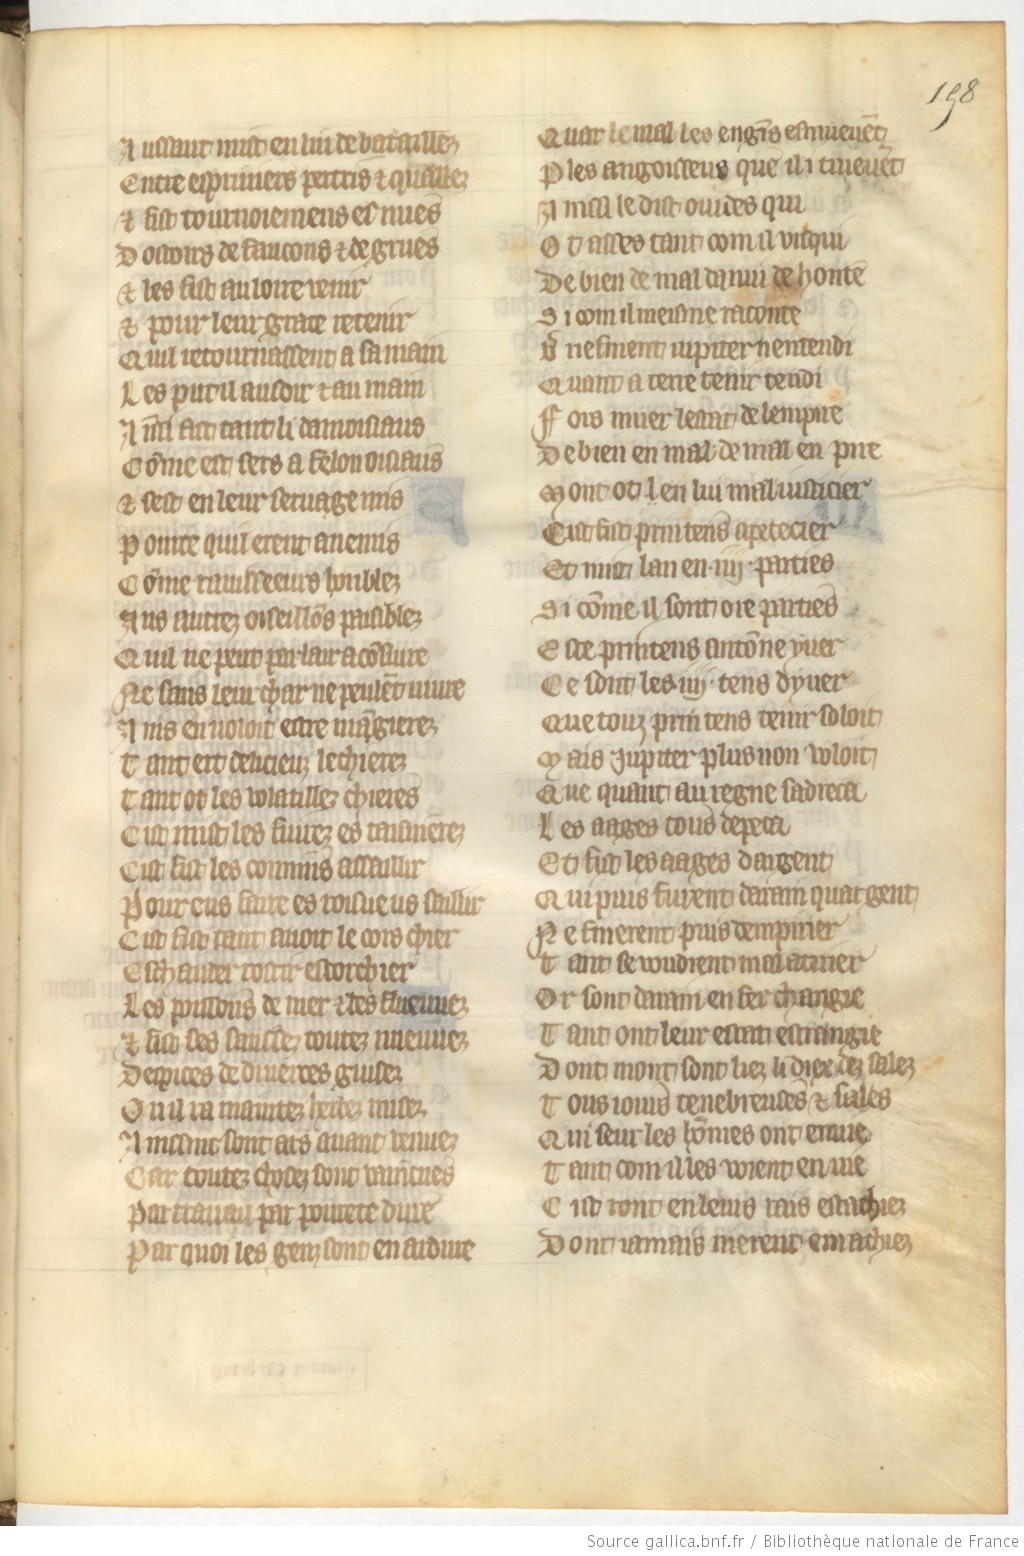 158
Aussaut mist en lui de bataille
Entre espriuiers pertris et quailles
et fist tournoiemens es nues
Dostours de faucons et de grues
et les fist au loire venir
et pour leur grace retenir
Quil retournassent a sa main
Les put il au soir et au main
Ainsi fist tant li damoisiaus
Cōme est sers a felon oisiaus
et sest en leur seruage mis
Pource quil erent anemis
Cōme rauisseeurs horriblez
Aus autrez oiseillōs paisiblez
Quil ne peut par lair acōsiure
Ne sans leur char ne peulēt viure
Ains en voloit estre māgierez
Tant ert delicieuz lechierez
Tant ot les volatillez chieres
Cist mist les fuirez es taisnierez
Cist fist les connins assaillir
Pour eus faire es roiseus saillir
Cist fist tant auoit le cors chier
Eschauder rostir escorchier
Les poissons de mer et des flueuuez
et fist les saussez toutez nueuuez
Despices de diuerses guisez
Ou il i a maintez herbez misez
Ainssint sont ars auant venuez
Car toutez chosez sont vaincues
Par trauail par pourete dure
Par quoi les genz sont en ardure
Quar le mal les engīs esmueuēt
P les angoisseus que il i trueuēt
Ainsi le dist ouides qui
Ot asses tant com il visqui
De bien de mal danui de honte
Si com il meisme raconte
Briefment iupiter nentendi
Quant a terre tenir tendi
Fors muer lestat de lempire
De bien en mal de mal en pire
Mont ot en lui mal iusticier
Cist fist printens apeticier
Et mist lan en .iiij. parties
Si cōme il sont ore parties
Este printens autōne yuer
Ce sont les .iiij. tens dyuer
Que touz printens tenir soloit
Mais Jupiter plus non voloit
Que quant au regne sadreca
Les aages tous depeca
Et fist les aages dargent
Qui puis furent darain quar gent
Ne finerent puis dempirier
Tant se voudrent mal atirier
Or sont darain en fer changie
Tant ont leur estat estrangie
Dont mont sont liez li diex dez salez
Tous iours tenebreuses et sales
Qui seur les hōmes ont enuie
Tant com il les voient en vie
Cist ront en leurs rais estachiez
Dont iamais nierent esrachiez
Source gallica.bnf.fr / Bibliothèque nationale de France